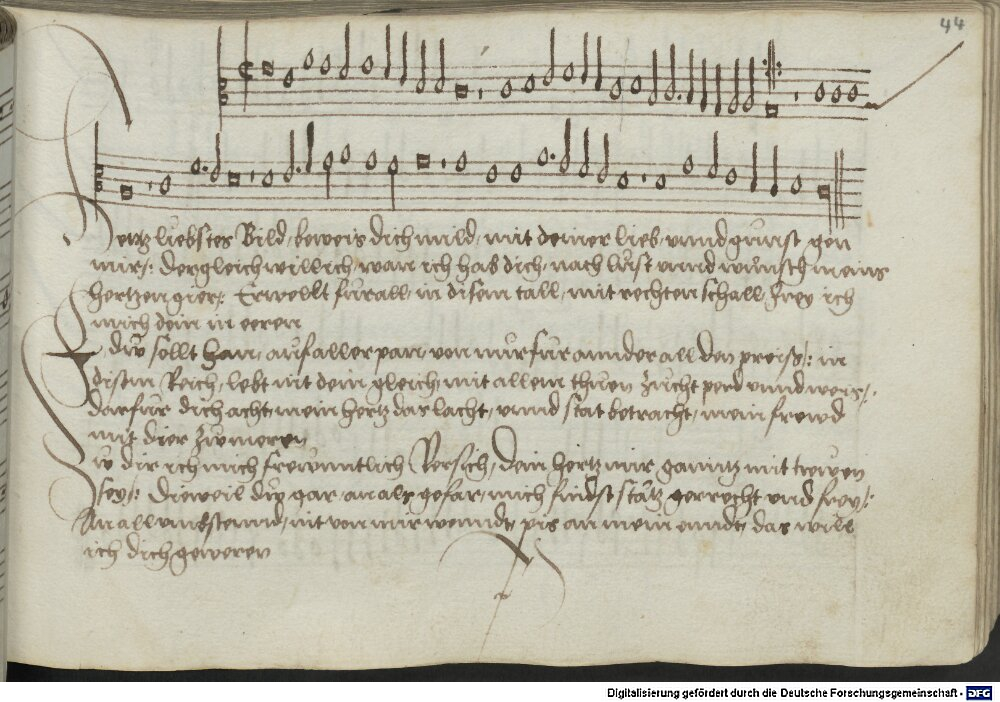 44
Hertz liebstes Bild, beweis dich mild, mit deiner lieb, unnd gunst gen
mir/: dergleich will ich, wan ich hab dich, nach lust unnd wunsch meins
hertzen gier/: Erwellt für all, in disem tall, mit rechten schall, frey ich
mich dein in eeren
du sollt han, auf aller pan, von mir für annder all den preiß/: in
disem Reich, lebt nit dein gleich, mit allem thuen zucht perd unnd weis/:
darfür dich acht, mein hertz das lacht, unnd stat betracht, mein frewd
mit dier zu meren
u dir ich mich freuntlich Versich, dein hertz mir ganntz mit trewen
sey/: Dieweil du gar, an als gefar, mich findst stätz gerecht und frey/:
An all umbstennd, nit von mir wenndt, pis an mein enndt, das will
ich dich geweren
Digitalisierung gefördert durch die Deutsche Forschungsgemeinschaft - DFG